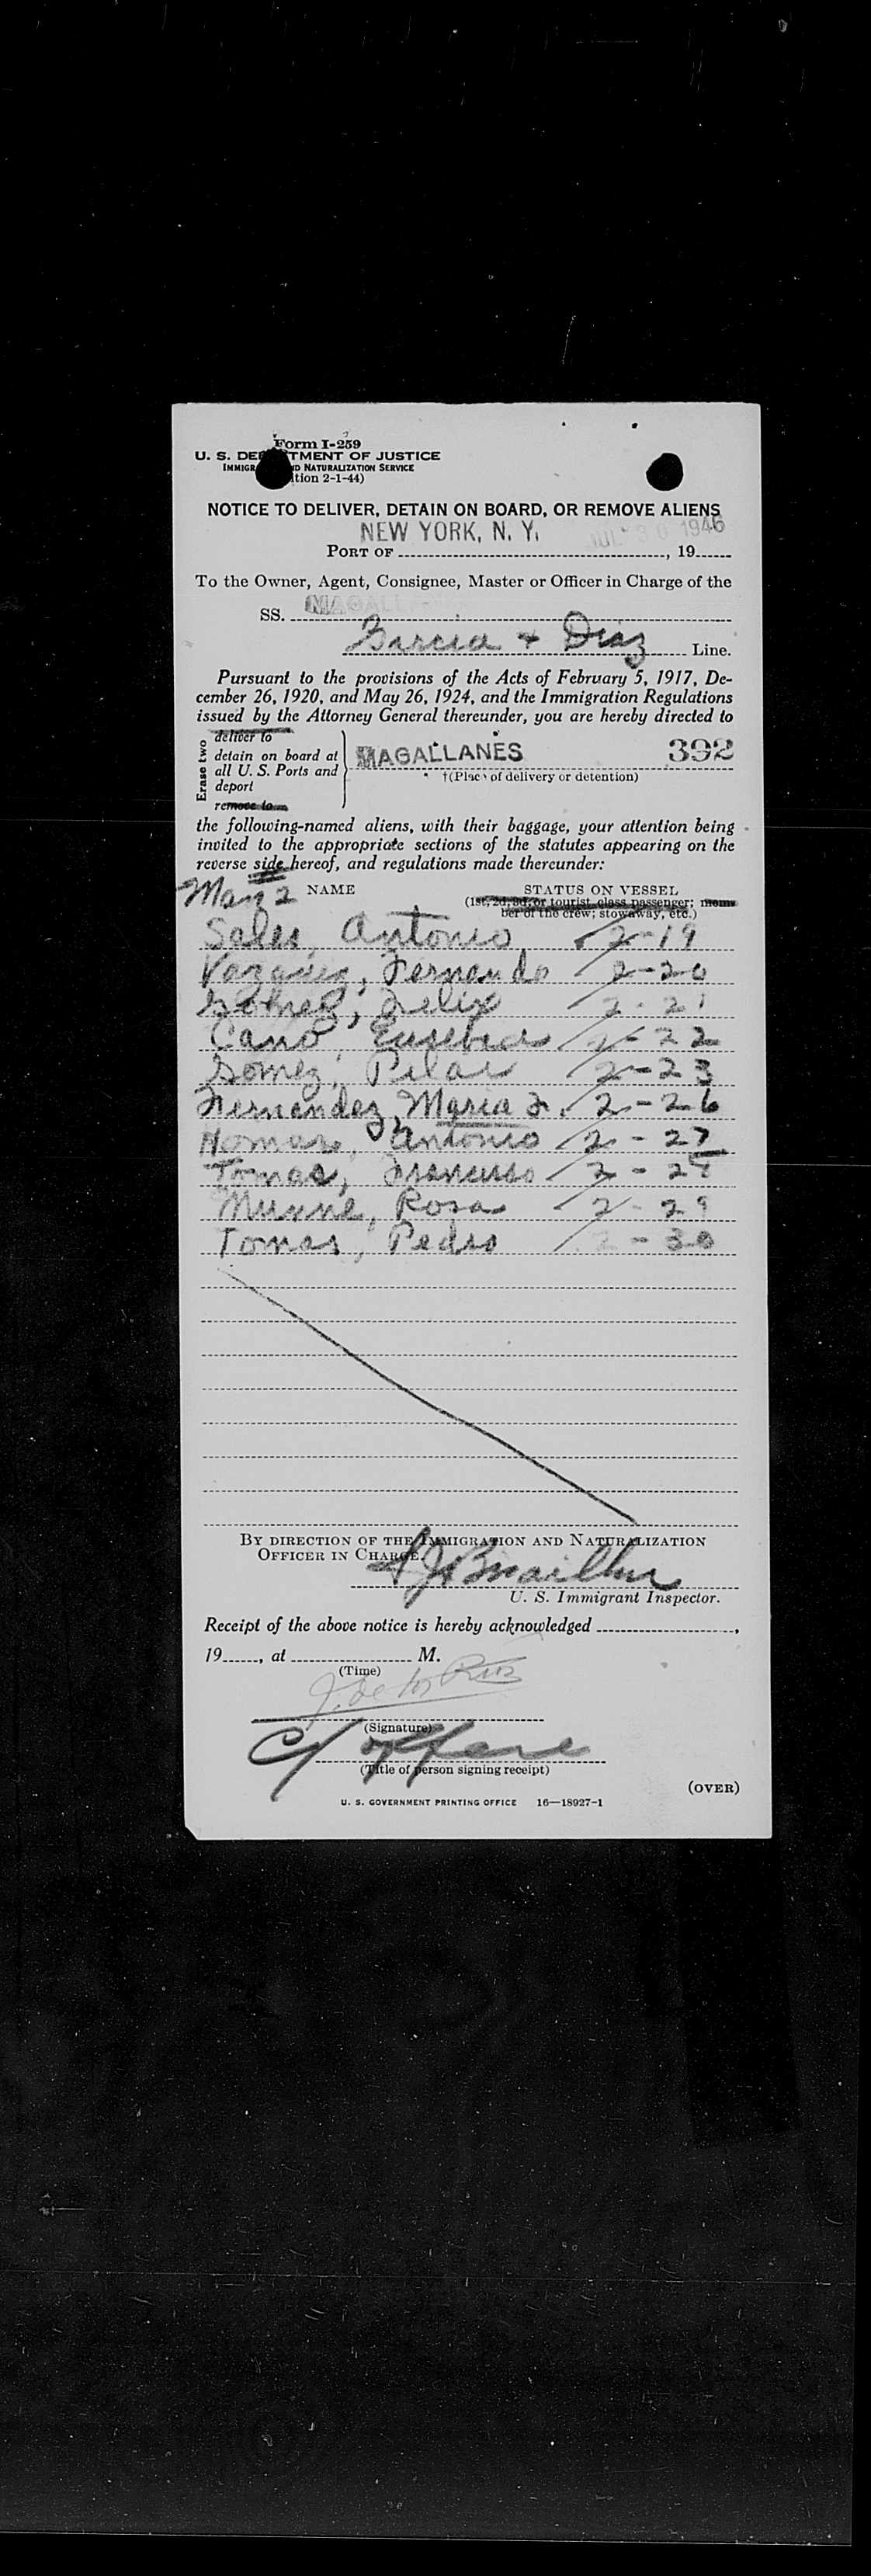 Form I-259
U. S. DE TMENT OF JUSTICE
IMMIGR D NATURALIZATION SERVICE
ition 2-1-44)
NOTICE TO DELIVER, DETAIN ON BOARD, OR REMOVE ALIENS
NEW YORK, N. Y. 30 1946
PORT OF , 19
To the Owner, Agent, Consignee, Master or Officer in Charge of the
SS. MAGALLANES
Garcia + Diaz Line.
Pursuant to the provisions of the Acts of February 5, 1917, De-
cember 26, 1920, and May 26, 1924, and the Immigration Regulations
issued by the Attorney General thereunder, you are hereby directed to
Erase two
deliver to
detain on board at
all U. S. Ports and
deport
remove to
MAGALLANES 392
†(Place of delivery or detention)
the following-named aliens, with their baggage, your attention being
invited to the appropriate sections of the statutes appearing on the
reverse side hereof, and regulations made thereunder:
Man 2 NAME STATUS ON VESSEL
(1st, 2d, 3d, or tourist class passenger; mem-
ber of the crew; stowaway, etc.)
Sales, Antonio 2-19
Vazquez, Fernando 2-20
Gomez, Felix 2-21
Cano, Eusebia 2-22
Gomez, Pilar 2-23
Fernandez, Maria F. 2-26
Antonio 2-27
Tomas, Francisco 2-28
Munne, Rosa 2-29
Tomas, Pedro 2-30
BY DIRECTION OF THE IMMIGRATION AND NATURALIZATION
OFFICER IN CHARGE.
U. S. Immigrant Inspector.
Receipt of the above notice is hereby acknowledged ,
19 , at M.
(Time)
(Signature)
(Title of person signing receipt)
(OVER)
U. S. GOVERNMENT PRINTING OFFICE 16—18927-1